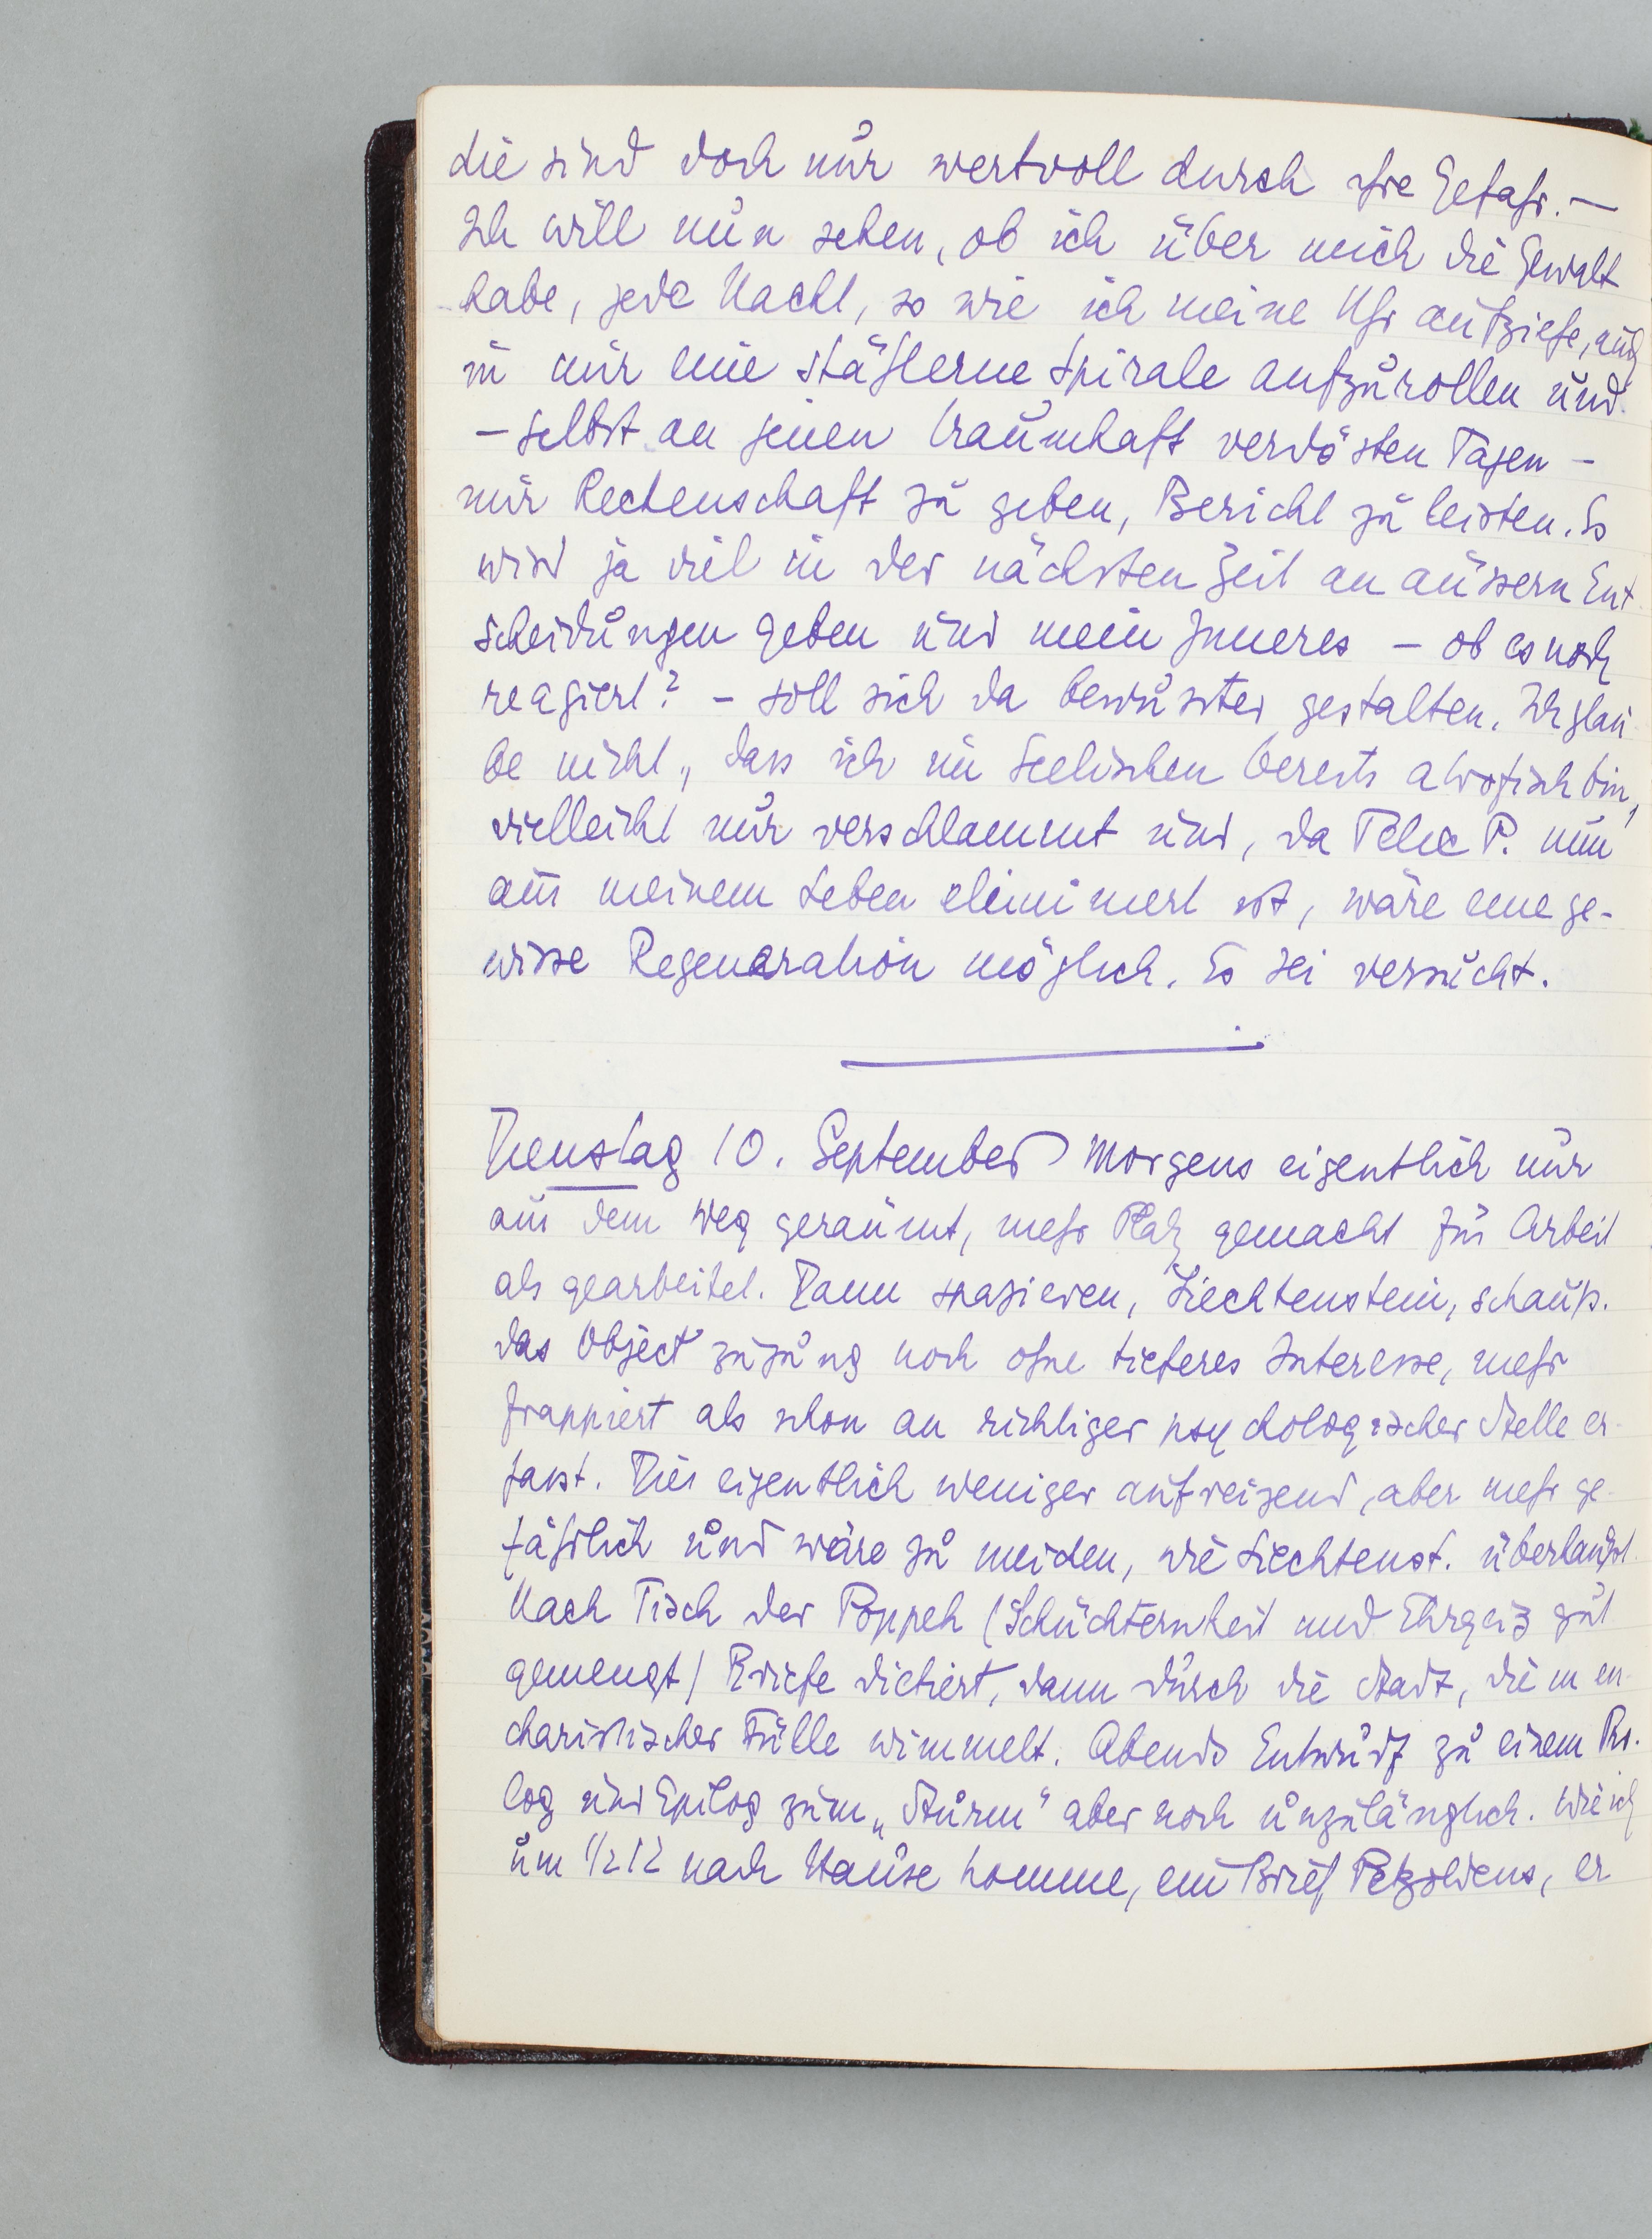 die sind doch nur wertvoll durch ihre Gefahr. —
Ich will nun sehen, ob ich über mich die Gewalt
habe, jede Nacht, so wie ich meine Uhr aufziehe, auch
in mir eine stählerne Spirale aufzurollen und
– selbst an jenen traumhaft verdösten Tagen –
mir Rechenschaft zu geben, Bericht zu leisten. Es
wird ja viel in der nächsten Zeit an äussern Ent
scheidungen geben und mein Inneres – ob es noch
reagiert? – soll sich da bewusster gestalten. Ich glau
be nicht, dass ich im Seelischen bereits atrofisch bin,
vielleicht nur verschlammt und, da Felix P. nun
aus meinem Leben eliminiert ist, wäre eine ge-
wisse Regeneration möglich. Es sei versucht.
Dienstag 10. September Morgens eigentlich nur
aus dem Weg geraümt, mehr Platz gemacht zur Arbeit
als gearbeitet. Dann spazieren, Liechtenstein, schaup.
das Object zujung noch ohne tieferes Interesse, mehr
frappiert als schon an richtiger psychologischer Stelle er
fasst. Dies eigentlich weniger aufreizend, aber mehr ge
fährlich und wäre zu meiden, wie Liechtenst. überhaupt
Nach Tisch der Poppeh (Schüchternheit und Ehrgeiz gut
gemengt) Briefe dictiert, dann durch die Stadt, die in eu
charistischer Fülle wimmelt. Abends Entwurf zu einem Pro.
log und Epilog zum „Sturm" aber noch unzulänglich. Wie ich
um 1/2 12 nach Hause komme, ein Brief Petzoldens, er